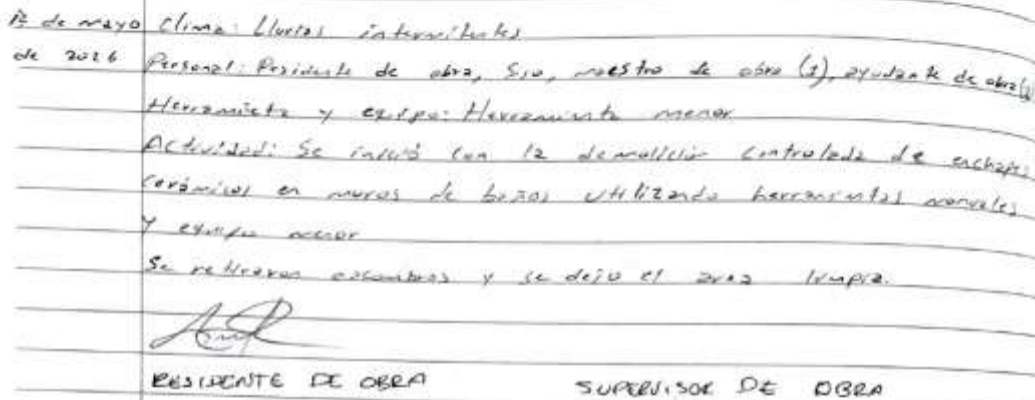 de mayo Clima: Lluvias intermitentes
de 2026 Personal: Residente de obra, Sso, maestro de obra (1), ayudante de obra
Herramieta y equipo: Herramienta menor
Actividad: Se inició con la demolición controlada de enchapes
cerámicos en muros de baños utilizando herramientas manuales
y equipo menor
Se retiraron escombros y se dejo el area limpia.
RESIDENTE DE OBRA SUPERVISOR DE OBRA